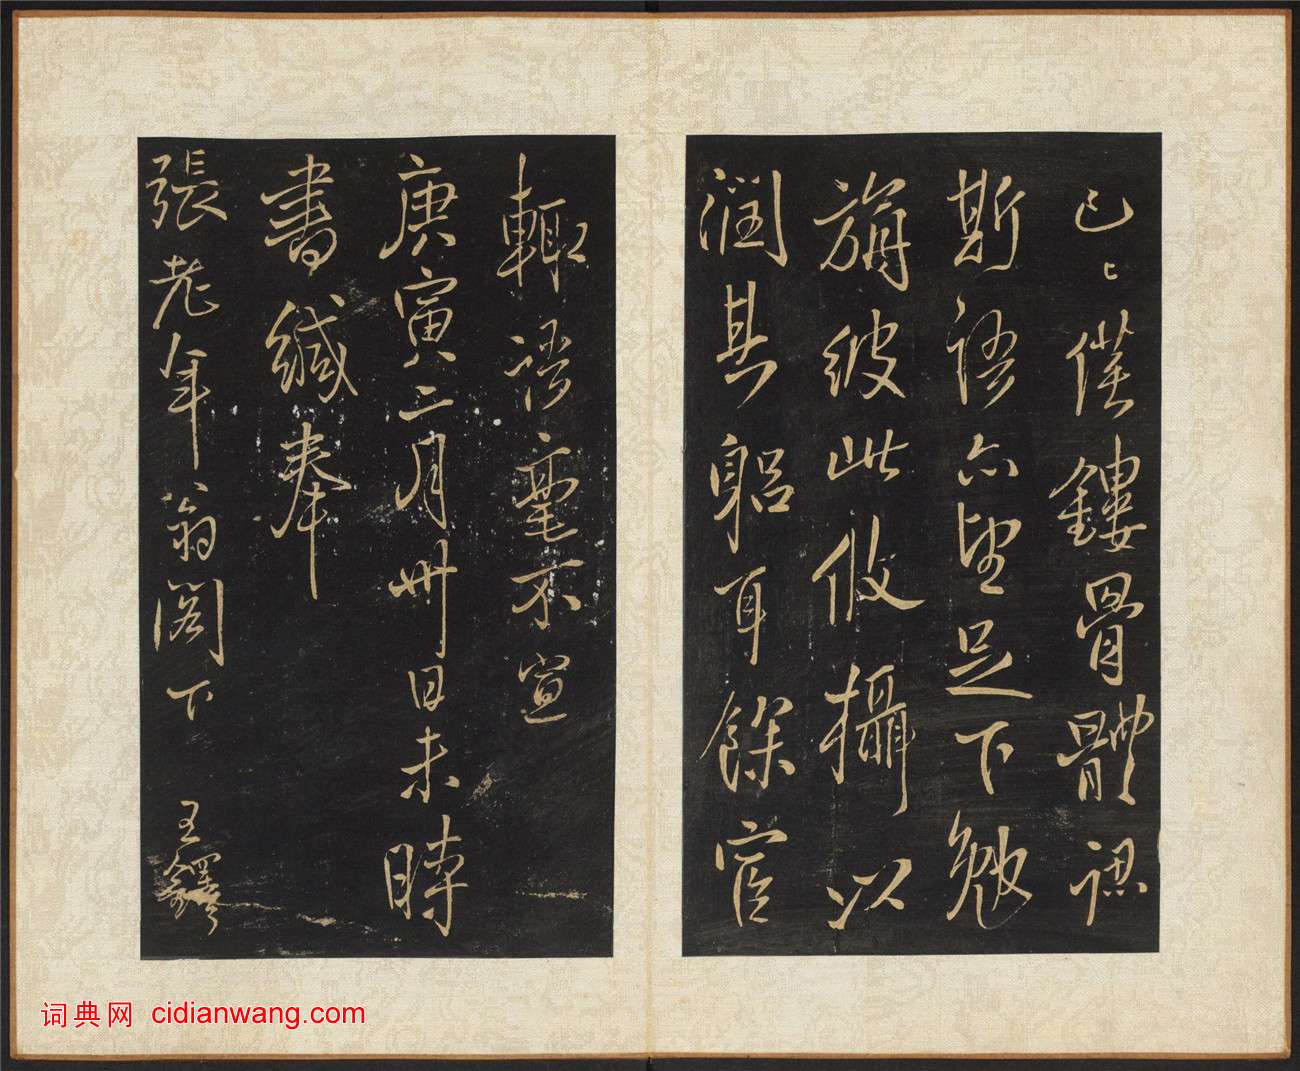 已已僕鏤骨體認
斯語亦望足下勉
旃彼此攸攝以
潤其躬耳餘容
輙語毫不宣
庚寅二月卅日未時
書緘奉
張老年翁閣下
王鐸
词典网 cidianwang.com